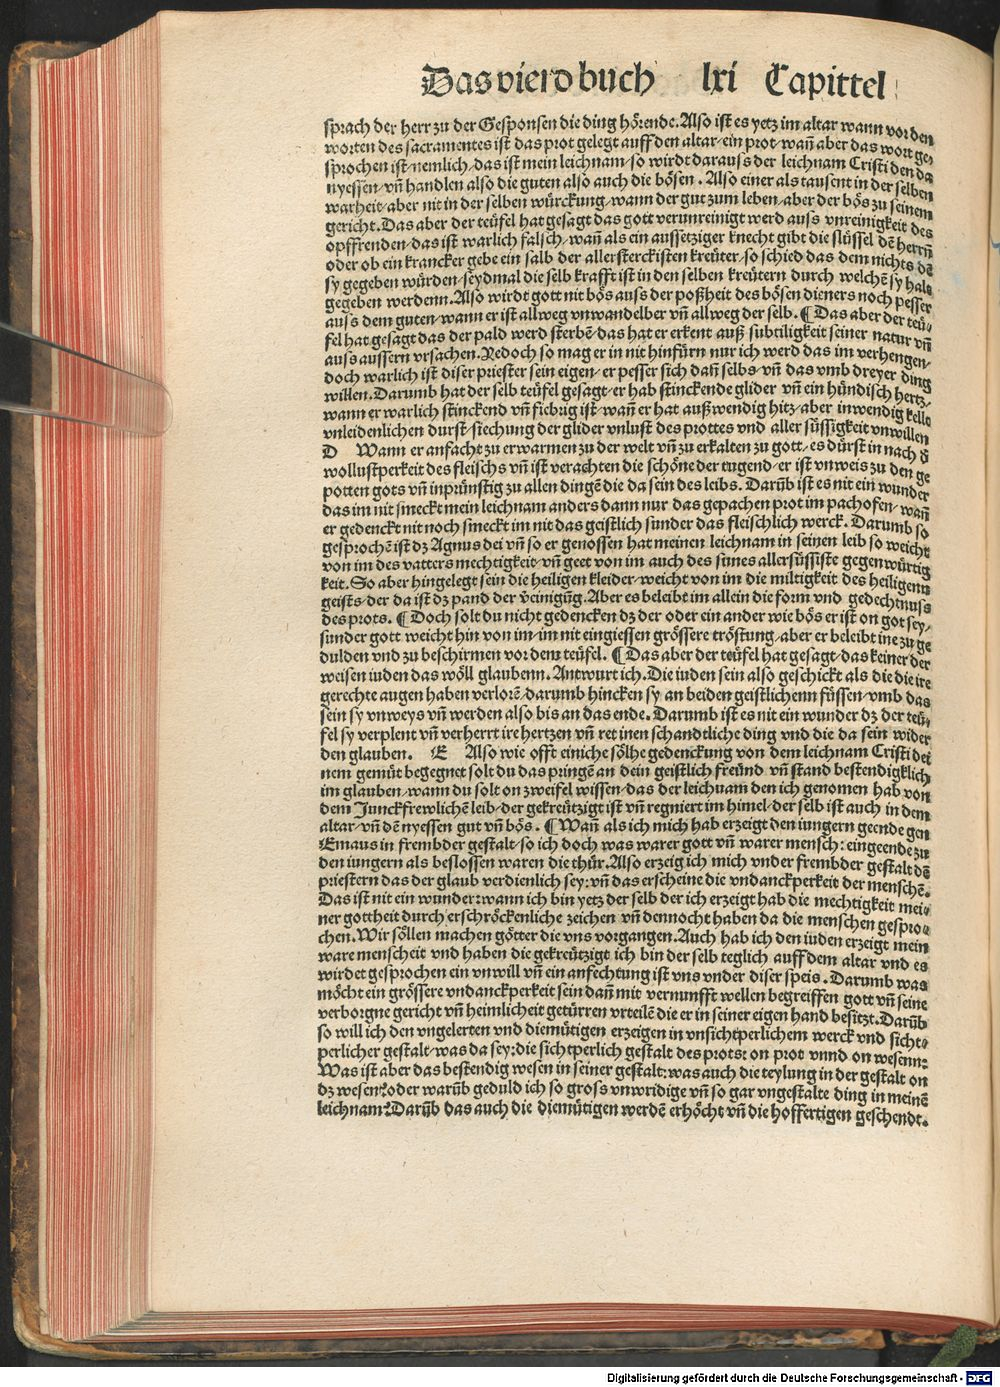 Das vierd buch lxi Capittel
sprach der herr zu der Gesponsen die ding hörende. Also ist es yetz im altar wann vor den
worten des sacramentes ist das prot gelegt auff den altar/ein prot/wañ aber das wort ge⸗
sprochen ist/nemlich/das ist mein leichnam/so wirdt daraus der leichnam Cristi den da
nyessen/vñ handlen also die guten also auch die bösen. Also einer als tausent in der selben
warheit/aber nit in der selben würckung/wann der gut zum leben/aber der bös zu seinem
gericht. Das aber der teüfel hat gesagt das gott verunreinigt werd auss vnreinigkeit des
opffrenden/das ist warlich falsch/wañ als ein aussetziger knecht gibt die slüssel dē herrñ
oder ob ein krancker gebe ein salb der allersterckisten kreüter/so schied das dem nichts dē
sy gegeben würden/seydmal die selb krafft ist in den selben kreütern durch welchē sy hals
gegeben werdenn. Also wirdt gott nit bös auss der poßheit des bösen dieners noch pesser
auss dem guten/wann er ist allweg vnwandelber vñ allweg der selb. ¶ Das aber der teü⸗
fel hat gesagt das der pald werd sterbē/das hat er erkent auß subtiligkeit seiner natur vñ
auss aussern vrsachen. Yedoch so mag er in nit hinfürn nur ich werd das im verhengen/
doch warlich ist diser priester sein eigen/er pesser sich dañ selbs/vñ das vmb dreyer ding
willen. Darumb hat der selb teüfel gesagt/er hab stinckende glider vñ ein hündisch hertz/
wann er warlich stinckend vñ fiebrig ist/wañ er hat außwendig hitz/aber inwendig kelle
vnleidenlichen durst/siechung der glider vnlust des prottes vnd aller süssigkeit vnwillen
D Wann er anfacht zu erwarmen zu der welt vñ zu erkalten zu gott/es dürst in nach d̄
wollustperkeit des fleischs vñ ist verachten die schöne der tugend/er ist vnweis zu den ge
potten gots vñ inprünstig zu allen dingē die da sein des leibs. Darūb ist es nit ein wunder
das im nit smeckt mein leichnam anders dann nur das gepachen prot im pachofen/wañ
er gedenckt nit noch smeckt im nit das geistlich sunder das fleischlich werck. Darumb so
gesprochē ist dz Agnus dei vñ so er genossen hat meinen leichnam in seinen leib so weicht
von im des vatters mechtigkeit/vñ geet von im auch des sunes allersüssiste gegenwürtig
keit. So aber hingelegt sein die heiligen kleider/weicht von im die miltigkeit des heiligenn
geists/der da ist dz pand der v̄einigūg. Aber es beleibt im allein die form vnd gedechtnuss
des prots. ¶ Doch solt du nicht gedencken dz der oder ein ander wie bös er ist on got sey/
sunder gott weicht hin von im/im nit eingiessen grössere tröstung/aber er beleibt ine zu ge
dulden vnd zu beschirmen vor dem teüfel. ¶ Das aber der teüfel hat gesagt/das keiner der
weisen iuden das wöll glaubenn. Antwurt ich. Die iuden sein also geschickt als die die ire
gerechte augen haben verlorē/darumb hincken sy an beiden geistlichenn füssen/vmb das
sein sy vnweys vñ werden also bis an das ende. Darumb ist es nit ein wunder dz der teü⸗
fel sy verplent vñ verherrt ire hertzen vñ ret inen schandtliche ding vnd die da sein wider
den glauben. E Also wie offt einiche sölhe gedenckung von dem leichnam Cristi dei
nem gemüt begegnet solt du das pringē an dein geistlich freünd vñ stand bestendigklich
im glauben/wann du solt on zweifel wissen/das der leichnam den ich genomen hab von
dem Junckfrewlichē leib/der gekreützigt ist vñ regniert im himel/der selb ist auch in dem
altar/vñ dē nyessen gut vñ bös. ¶ Wañ als ich mich hab erzeigt den iungern geende gen
Emaus in frembder gestalt/so ich doch was warer gott vñ warer mensch: eingeende zu
den iungern als beslossen waren die thür. Also erzeig ich mich vnder frembder gestalt dē
priestern das der glaub verdienlich sey: vñ das erscheine die vndanckperkeit der menschē.
Das ist nit ein wunder: wann ich bin yetz der selb der ich erzeigt hab die mechtigkeit mei⸗
ner gottheit durch erschröckenliche zeichen vñ dennocht haben da die menschen gespro⸗
chen. Wir söllen machen götter die vns vorgangen. Auch hab ich den iuden erzeigt mein
ware menscheit vnd haben die gekreützigt ich bin der selb teglich auff dem altar vnd es
wirdet gesprochen ein vnwill vñ ein anfechtung ist vns vnder diser speis. Darumb was
möcht ein grössere vndanckperkeit sein dañ mit vernunfft wellen begreiffen gott vñ seine
verborgne gericht vñ heimlicheit getürren vrteilē die er in seiner eigen hand besitzt. Darūb
so will ich den vngelerten vnd diemütigen erzeigen in vnsichtperlichem werck vnd sicht⸗
perlicher gestalt/was da sey: die sichtperlich gestalt des prots: on prot vnnd on wesenn:
Was ist aber das bestendig wesen in seiner gestalt: was auch die teylung in der gestalt on
dz wesen? oder warūb geduld ich so gross vnwirdige vñ so gar vngestalte ding in meinē
leichnam? Darūb das auch die diemütigen werdē erhöcht vñ die hoffertigen geschendt.
Digitalisierung gefördert durch die Deutsche Forschungsgemeinschaft - DFG